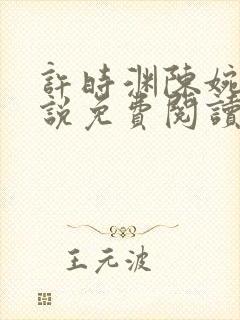 許時淵陳婉
說免費閱讀
王元波